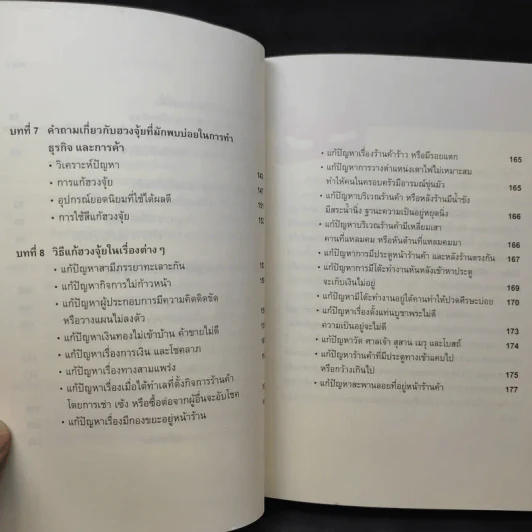 บทที่ 7 คำถามเกี่ยวกับฮวงจุ้ยที่มักพบบ่อยในการทำ
ธุรกิจ และการค้า
• วิเคราะห์ปัญหา
• การแก้ฮวงจุ้ย
• อุปกรณ์ยอดนิยมที่ใช้ได้ผลดี
• การใช้สีแก้ฮวงจุ้ย
บทที่ 8 วิธีแก้ฮวงจุ้ยในเรื่องต่าง ๆ
• แก้ปัญหาสามีภรรยาทะเลาะกัน
• แก้ปัญหากิจการไม่ก้าวหน้า
• แก้ปัญหาผู้ประกอบการมีความคิดติดขัด
หรือวางแผนไม่ลงตัว
• แก้ปัญหาเงินทองไม่เข้าบ้าน ค้าขายไม่ดี
• แก้ปัญหาเรื่องการเงิน และโชคลาภ
• แก้ปัญหาเรื่องทางสามแพร่ง
• แก้ปัญหาเรื่องเมื่อได้ทำเลที่ตั้งกิจการร้านค้า
โดยการเช่า เซ้ง หรือซื้อต่อจากผู้อื่นจะอับโชค
• แก้ปัญหาเรื่องมีกองขยะอยู่หน้าร้าน
• แก้ปัญหาเรื่องร้านค้าร้าว หรือมีรอยแตก 165
• แก้ปัญหาการวางตำแหน่งเตาไฟไม่เหมาะสม
ทำให้คนในครอบครัวมีอารมณ์ขุ่นมัว 165
• แก้ปัญหาบริเวณร้านค้า หรือหลังร้านมีน้ำขัง
มีสระน้ำนิ่ง ฐานะความเป็นอยู่หยุดนิ่ง 166
• แก้ปัญหาบริเวณร้านค้ามีเหลี่ยมเสา
คานที่แหลมคม หรือหันด้านที่แหลมคมมา 167
• แก้ปัญหาการมีประตูหน้าร้านค้า และหลังร้านตรงกัน 168
• แก้ปัญหาการมีโต๊ะทำงานหันหลังเข้าหาประตู
จะเก็บเงินไม่อยู่ 169
• แก้ปัญหามีโต๊ะทำงานอยู่ใต้คานทำให้ปวดศีรษะบ่อย 170
• แก้ปัญหาเรื่องตั้งแท่นบูชาพระไม่ดี
ความเป็นอยู่จะไม่ดี 173
• แก้ปัญหาวัด ศาลเจ้า สุสาน เมรุ และโบสถ์ 174
• แก้ปัญหาร้านค้าที่มีประตูทางเข้าแคบไป
หรือกว้างเกินไป 175
• แก้ปัญหาสะพานลอยที่อยู่หน้าร้านค้า 177